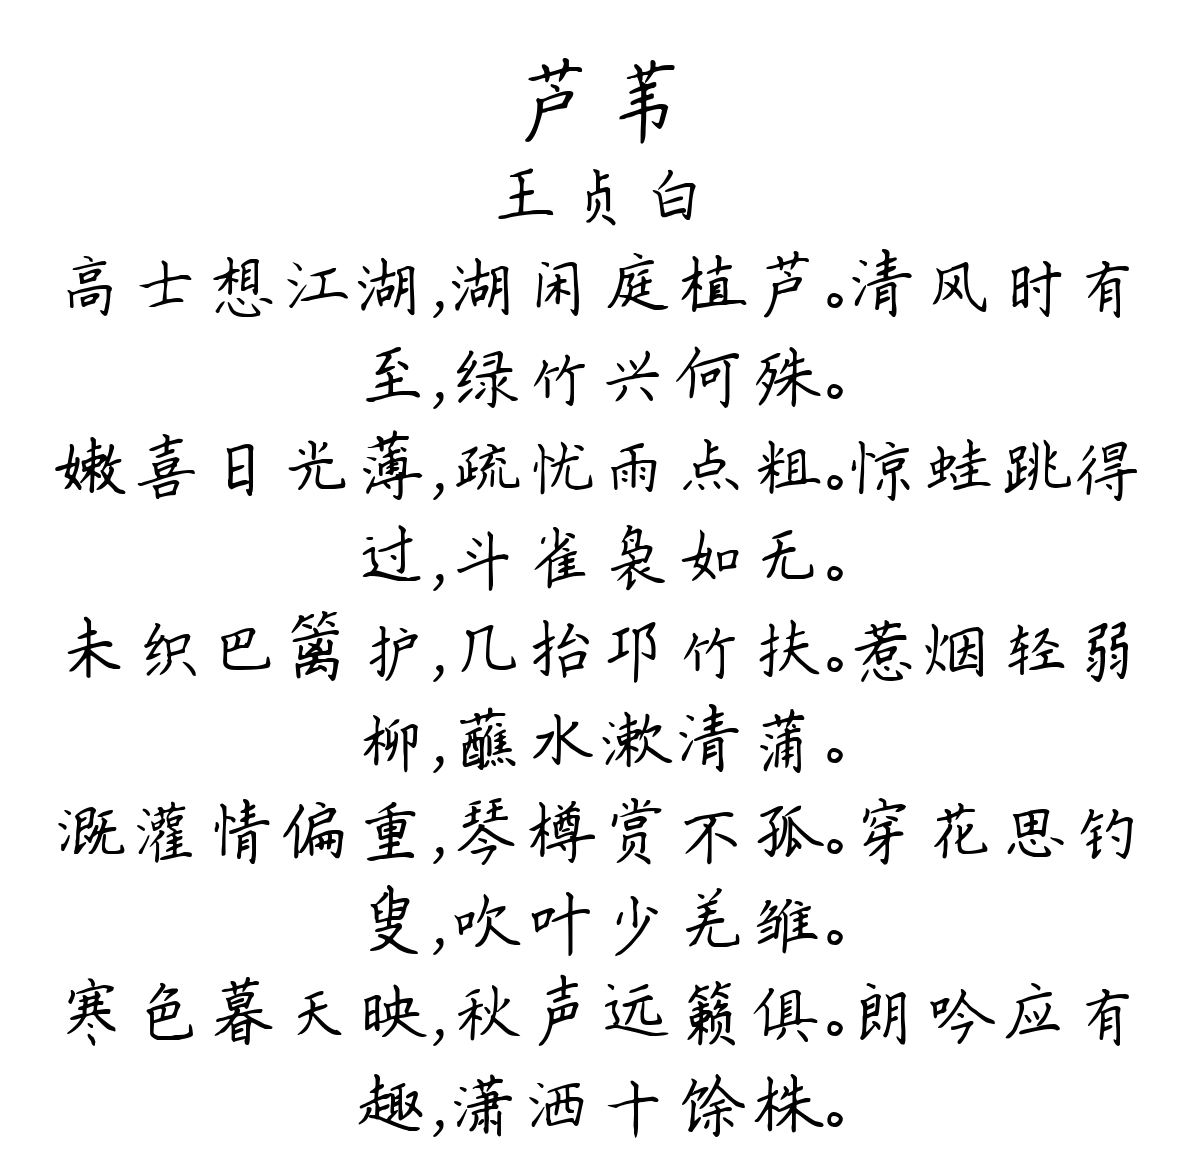 芦苇
王贞白
高士想江湖,湖闲庭植芦。清风时有
至,绿竹兴何殊。
嫩喜日光薄,疏忧雨点粗。惊蛙跳得
过,斗雀袅如无。
未织巴篱护,几抬邛竹扶。惹烟轻弱
柳,蘸水漱清蒲。
溉灌情偏重,琴樽赏不孤。穿花思钓
叟,吹叶少羌雏。
寒色暮天映,秋声远籁俱。朗吟应有
趣,潇洒十馀株。